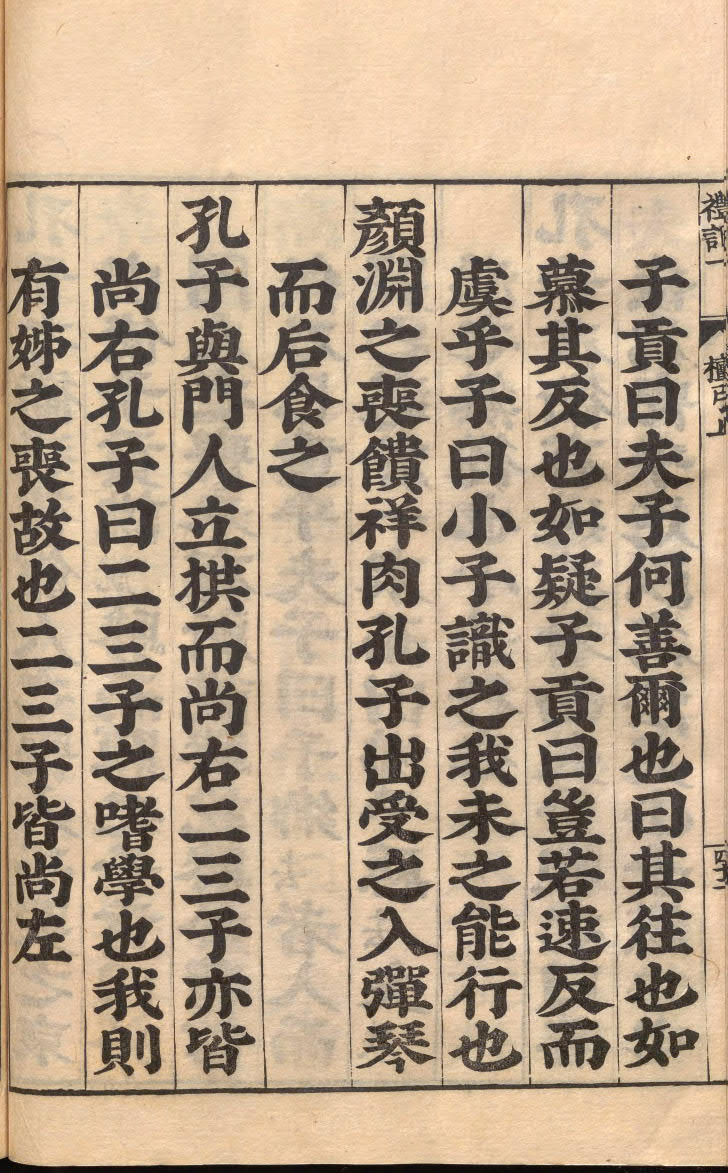 子貢曰夫子何善爾也曰其往也如
慕其反也如疑子貢曰豈若速反而
虞乎子曰小子識之我未之能行也
顏淵之喪饋祥肉孔子出受之入彈琴
而后食之
孔子與門人立拱而尚右二三子亦皆
尚右孔子曰二三子之嗜學也我則
有姊之喪故也二三子皆尚左